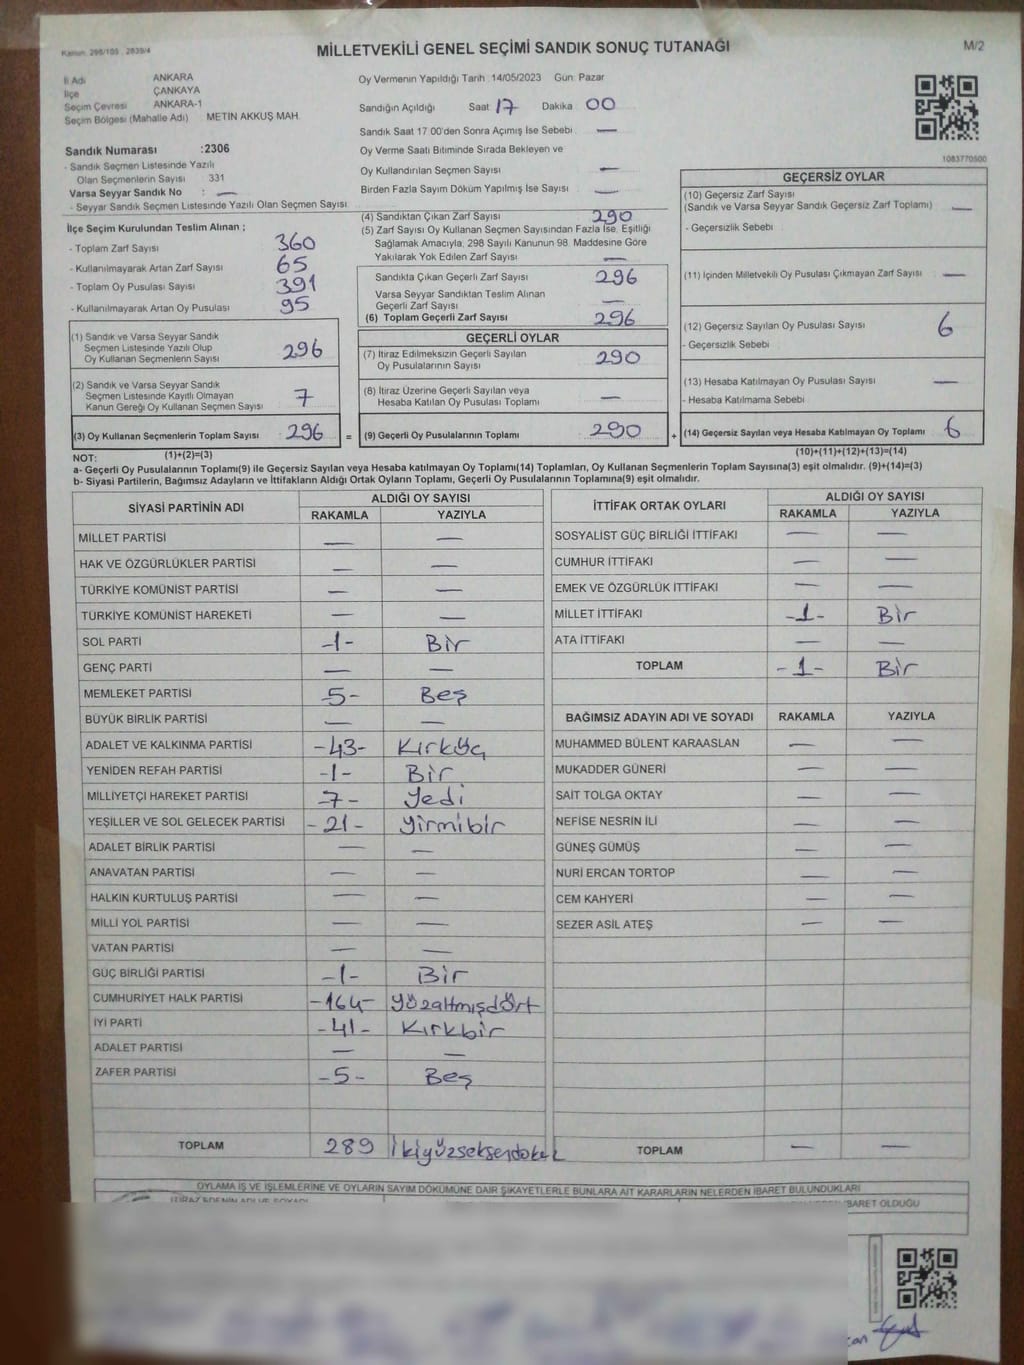 Kanun: 298/105 , 2839/4
MİLLETVEKİLİ GENEL SEÇİMİ SANDIK SONUÇ TUTANAĞI
M/2
İl Adı ANKARA
İlçe ÇANKAYA
Seçim Çevresi ANKARA-1
Seçim Bölgesi (Mahalle Adı) METİN AKKUŞ MAH.
Sandık Numarası :2306
- Sandık Seçmen Listesinde Yazılı
Olan Seçmenlerin Sayısı 331
Varsa Seyyar Sandık No : —
- Seyyar Sandık Seçmen Listesinde Yazılı Olan Seçmen Sayısı
Oy Vermenin Yapıldığı Tarih 14/05/2023 Gün: Pazar
Sandığın Açıldığı Saat 17 Dakika 00
Sandık Saat 17 00'den Sonra Açımış İse Sebebi —
Oy Verme Saati Bitiminde Sırada Bekleyen ve
Oy Kullandırılan Seçmen Sayısı —
Birden Fazla Sayım Döküm Yapılmış İse Sayısı —
1083770500
İlçe Seçim Kurulundan Teslim Alınan ;
- Toplam Zarf Sayısı 360
- Kullanılmayarak Artan Zarf Sayısı 65
- Toplam Oy Pusulası Sayısı 391
- Kullanılmayarak Artan Oy Pusulası 95
(1) Sandık ve Varsa Seyyar Sandık
Seçmen Listesinde Yazılı Olup
Oy Kullanan Seçmenlerin Sayısı 296
(2) Sandık ve Varsa Seyyar Sandık
Seçmen Listesinde Kayıtlı Olmayan
Kanun Gereği Oy Kullanan Seçmen Sayısı 7
(3) Oy Kullanan Seçmenlerin Toplam Sayısı 296 =
(1)+(2)=(3)
(4) Sandıktan Çıkan Zarf Sayısı 290
(5) Zarf Sayısı Oy Kullanan Seçmen Sayısından Fazla İse, Eşitliği
Sağlamak Amacıyla, 298 Sayılı Kanunun 98. Maddesine Göre
Yakılarak Yok Edilen Zarf Sayısı —
Sandıkta Çıkan Geçerli Zarf Sayısı 296
Varsa Seyyar Sandıktan Teslim Alınan
Geçerli Zarf Sayısı —
(6) Toplam Geçerli Zarf Sayısı 296
GEÇERLİ OYLAR
(7) İtiraz Edilmeksizin Geçerli Sayılan
Oy Pusulalarının Sayısı 290
(8) İtiraz Üzerine Geçerli Sayılan veya
Hesaba Katılan Oy Pusulası Toplamı —
(9) Geçerli Oy Pusulalarının Toplamı 290 +
GEÇERSİZ OYLAR
(10) Geçersiz Zarf Sayısı
(Sandık ve Varsa Seyyar Sandık Geçersiz Zarf Toplamı) —
- Geçersizlik Sebebi
(11) İçinden Milletvekili Oy Pusulası Çıkmayan Zarf Sayısı —
(12) Geçersiz Sayılan Oy Pusulası Sayısı 6
- Geçersizlik Sebebi
(13) Hesaba Katılmayan Oy Pusulası Sayısı —
- Hesaba Katılmama Sebebi
(14) Geçersiz Sayılan veya Hesaba Katılmayan Oy Toplamı 6
(10)+(11)+(12)+(13)=(14)
NOT:
a- Geçerli Oy Pusulalarının Toplamı(9) ile Geçersiz Sayılan veya Hesaba katılmayan Oy Toplamı(14) Toplamları, Oy Kullanan Seçmenlerin Toplam Sayısına(3) eşit olmalıdır. (9)+(14)=(3)
b- Siyasi Partilerin, Bağımsız Adayların ve İttifakların Aldığı Ortak Oyların Toplamı, Geçerli Oy Pusulalarının Toplamına(9) eşit olmalıdır.
SİYASİ PARTİNİN ADI ALDIĞI OY SAYISI
RAKAMLA YAZIYLA
MİLLET PARTİSİ — —
HAK VE ÖZGÜRLÜKLER PARTİSİ — —
TÜRKİYE KOMÜNİST PARTİSİ — —
TÜRKİYE KOMÜNİST HAREKETİ — —
SOL PARTİ -1- Bir
GENÇ PARTİ — —
MEMLEKET PARTİSİ -5- Beş
BÜYÜK BİRLİK PARTİSİ — —
ADALET VE KALKINMA PARTİSİ -43- Kırküç
YENİDEN REFAH PARTİSİ -1- Bir
MİLLİYETÇİ HAREKET PARTİSİ -7- Yedi
YEŞİLLER VE SOL GELECEK PARTİSİ -21- Yirmibir
ADALET BİRLİK PARTİSİ — —
ANAVATAN PARTİSİ — —
HALKIN KURTULUŞ PARTİSİ — —
MİLLİ YOL PARTİSİ — —
VATAN PARTİSİ — —
GÜÇ BİRLİĞİ PARTİSİ -1- Bir
CUMHURİYET HALK PARTİSİ -164- Yüzaltmışdört
İYİ PARTİ -41- Kırkbir
ADALET PARTİSİ — —
ZAFER PARTİSİ -5- Beş
TOPLAM 289 İkiyüzseksendokuz
İTTİFAK ORTAK OYLARI ALDIĞI OY SAYISI
RAKAMLA YAZIYLA
SOSYALİST GÜÇ BİRLİĞİ İTTİFAKI — —
CUMHUR İTTİFAKI — —
EMEK VE ÖZGÜRLÜK İTTİFAKI — —
MİLLET İTTİFAKI -1- Bir
ATA İTTİFAKI — —
TOPLAM -1- Bir
BAĞIMSIZ ADAYIN ADI VE SOYADI RAKAMLA YAZIYLA
MUHAMMED BÜLENT KARAASLAN — —
MUKADDER GÜNERİ — —
SAİT TOLGA OKTAY — —
NEFİSE NESRİN İLİ — —
GÜNEŞ GÜMÜŞ — —
NURİ ERCAN TORTOP — —
CEM KAHYERİ — —
SEZER ASİL ATEŞ — —
TOPLAM — —
OYLAMA İŞ VE İŞLEMLERİNE VE OYLARIN SAYIM DÖKÜMÜNE DAİR ŞİKAYETLERLE BUNLARA AİT KARARLARIN NELERDEN İBARET BULUNDUKLARI
İTİRAZ EDENİN ADI VE SOYADI
İBARET OLDUĞU